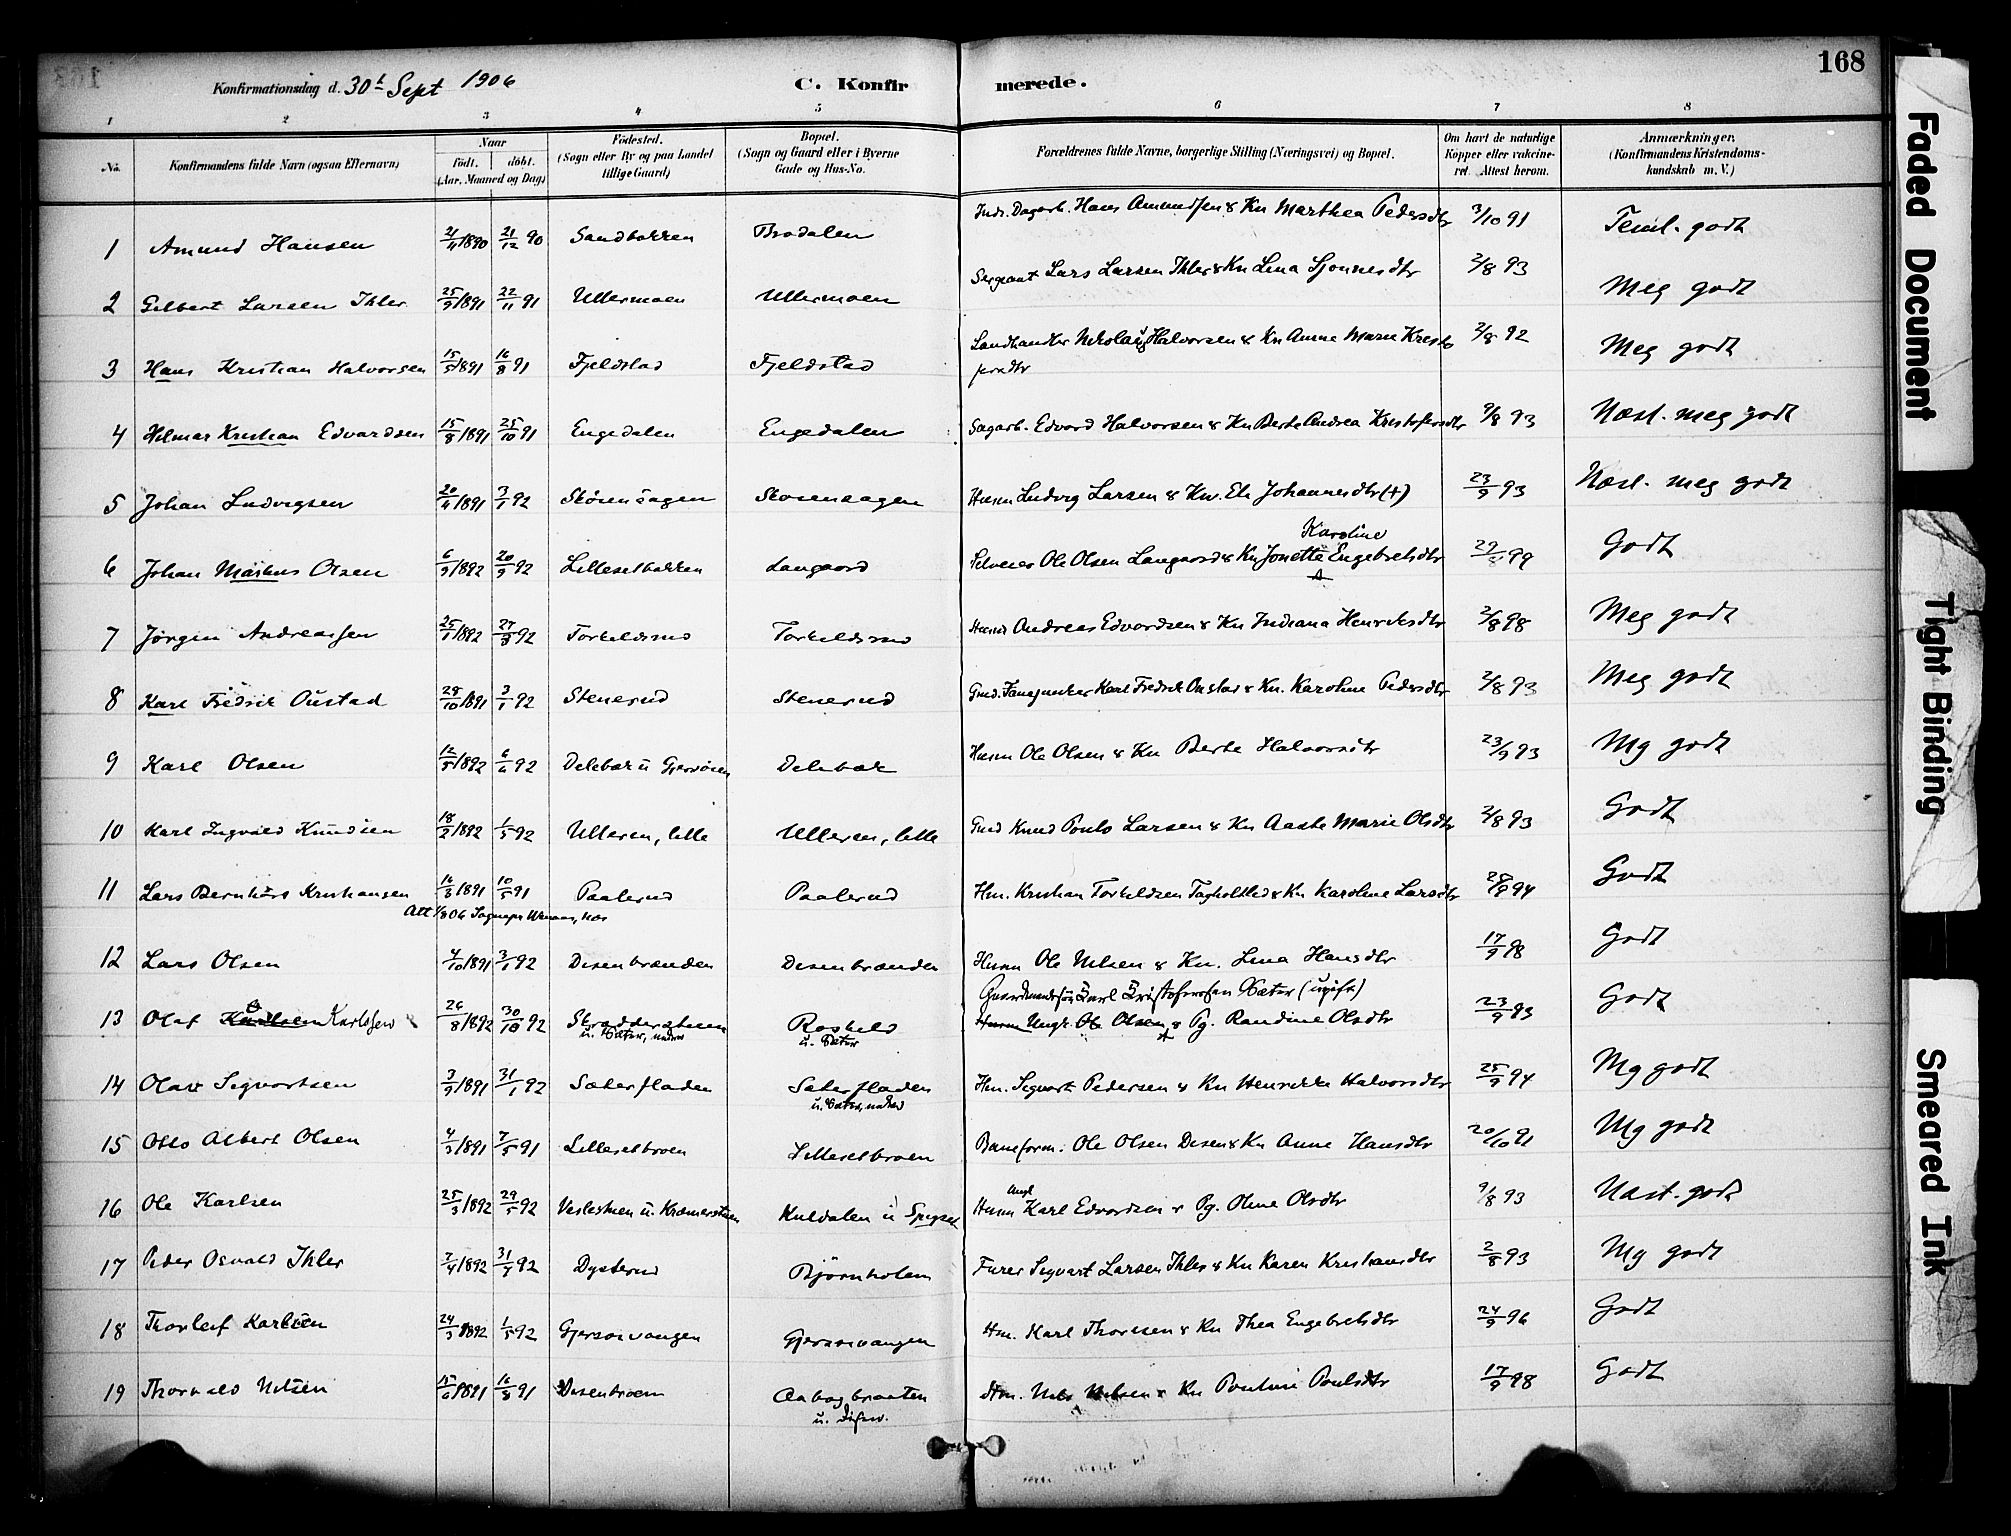 168
Konfirmationsdag d. 30t Sept 1906
C. Konfirmerede.
1 2 3 4 5 6 7 8
No. Konfirmandens fulde Navn (ogsaa Efternavn) Naar født. døbt. (Aar, Maaned og Dag) Fødested. (Sogn eller By og paa Landet tillige Gaard) Bopæl. (Sogn og Gaard eller i Byerne Gade og Hus-No. Forældrenes fulde Navne, borgerlige Stilling (Næringsvei) og Bopæl. Om havt de naturlige Kopper eller vakcineret. Attest herom. Anmærkninger. (Konfirmandens Kristendomskundskab m. V.)
1 Amund Hansen 21/11 1890 21/12 90 Sandbakken Brodalen Hans Amundsen & Kn Marthea Pedersdtr 3/10 91 Teml. godt
2 Gilbert Larsen Ihler 25/9 1891 22/11 91 Ullermoen Ullermoen Sergeant Lars Larsen Ihler & Kn Lina Sjønnesdtr 2/8 93 Meg godt
3 Hans Kristian Halvorsen 15/5 1891 16/8 91 Fjeldstad Fjeldstad Landhandler Nikolaus Halvorsen & Kn Anne Marie Kristofersdtr 2/8 92 Meg godt
4 Hilmar Kristian Edvardsen 15/8 1891 25/10 91 Engedalen Engedalen Sagarb. Edvard Halvorsen & Kn Berte Andrea Kristofersdtr 9/8 93 Næst. meg godt
5 Johan Ludvigsen 20/4 1891 3/1 92 Skøiensagen Skoiensagen Husm Ludvig Larsen & Kn. Eli Johannesdtr (+) 23/9 93 Næst. meg godt
6 Johan Markus Olsen 6/9 1892 20/9 92 Lillesetbakken Langaard Selveier Ole Olsen Langaard & Kn Jonette Karoline Engebretsdtr 99 Godt
7 Jørgen Andreassen 25/1 1892 27/3 92 Torkeldsrud Torkeldsrud Husm Andreas Edvardsen & Kn Indiana Henriksdtr 2/8 98 Meg godt
8 Karl Fredrik Oustad 28/10 1891 3/1 92 Stenerud Stenerud Karl Fredrik Oustad & Kn. Karoline Pedersdtr 2/8 93 Meg godt
9 Karl Olsen 12/5 1892 6/6 92 Delebæk u Gjersøien Delebæk Husm Ole Olsen & Kn Berte Halvorsdtr 23/9 93 Mg godt
10 Karl Ingvald Knudsen 18/2 1892 1/5 92 Ulleren, lille Ulleren, lille Gmd Knud Pouls Larsen & Kn Aaste Marie Olsdtr 2/8 93 Godt
11 Lars Bernhard Kristiansen 16/3 1891 10/5 91 Paalerud Paalerud Hm. Kristian Torkildsen & Kn Karoline Larsdtr 94 Godt
12 Lars Olsen 4/10 1891 3/1 92 Disenbrænden Disenbrænden Husm Ole Nilsen & Kn. Lina Hansdtr 17/9 98 Godt
13 Olaf Karlsen 26/8 1892 30/10 92 Skrædderstuen u. Sæter, nedre Roskeld u. Sæter Gaardmandssøn Karl Kristofersen Sæter (ugift) Husm Ungk. Ole Olsen & Pg. Randine Olsdtr 23/9 93 Godt
14 Olav Sigvartsen 3/9 1891 31/1 92 Sæterfladen Sæterfladen u. Sæter, nedre Hm. Sigvart Pedersen & Kn Henrikke Halvorsdtr 25/9 94 Mg godt
15 Otto Albert Olsen 4/3 1891 7/5 91 Lillesetbroen Lillesetbroen Baneform. Ole Olsen Disen & Kn Anne Hansdtr 20/10 91 Mg godt
16 Ole Karlsen 25/3 1892 29/5 92 Veslestuen u. Kræmerstuen Kuldalen u Spigset Husm Ungk Karl Edvardsen & Pg. Oline Olsdtr 9/8 93 Næst. godt
17 Peder Osvald Ihler 7/4 1892 31/7 92 Dysterud Bjørnholen Furer Sigvart Larsen Ihler & Kn Karen Kristiansdtr 2/8 93 Mg godt
18 Thorleif Karlsen 24/3 1892 1/5 92 Gjersoivangen Gjersoivangen Hm. Karl Thoresen & Kn Thea Engebretsdtr 24/9 96 Godt
19 Thorvald Nilsen 15/6 1891 16/8 91 Disenbroen Aabogbraaten u. Disen. Hm. Nils Nilsen & Kn Pouline Poulsdtr 17/9 98 Godt
Faded Document
Tight Binding
Smeared Ink